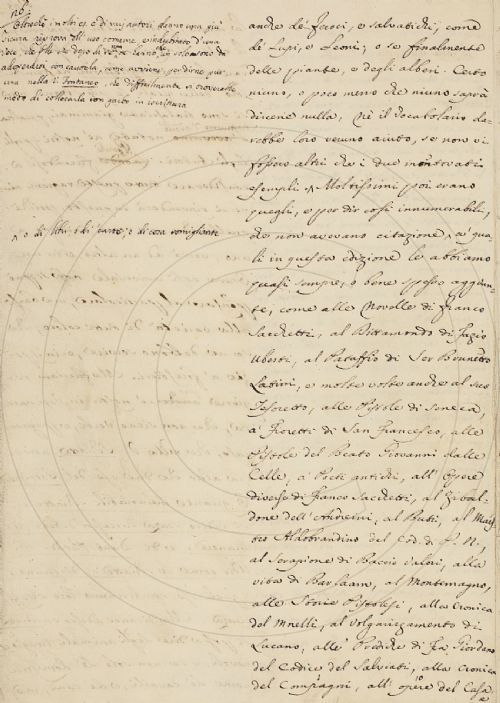 126.
Oltrechè i nostri es. e di varj autori danno con più
sicura riprova
che
modo di collocarla con garbo in scrittura
^ o di libri, o di carte, o di cosa somigliante
anche de' feroci, e salvatichi, come
di Lupi, e Leoni; e se finalmente
delle piante, e degli alberi. Certo
niuno, e poco meno che niuno saprà
dirne nulla, nè il Vocabolario da-
rebbe loro veruno aiuto, se non vi
fossero altri che i due mentovati
esempli ^. Moltissimi poi erano
quegli, e per dir così innumerabili,
che non avevano citazione, a' qua
li in questa edizione le abbiamo
quasi sempre, o bene spesso aggiun-
te, come alle Novelle di Franco
Sacchetti, al Dittamondo di Fazio
Uberti, al Pataffio di Ser Brunetto
Latini, e molte volte anche al suo
Tesoretto, alle Pistole di Seneca,
a' Fioretti di San Francesco, alle
Pistole del Beato Giovanni dalle
Celle, a' Poeti antichi, all' Opere
diverse di Franco Sacchetti, al Zibal-
done dell' Andreini, al Buti, al Maes
tro Aldobrandino del Cod. di F. N.,
al Serapione di Baccio Valori, alla
vita di Barlaam, al Montemagno,
alle Storie Pistolesi, alla Cronica
del Morelli, al volgarizzamento di
Lucano, alle Prediche di Fra Giordano
del Codice del Salviati, alla Cronica
del Compagni, all' opere del Casa
e